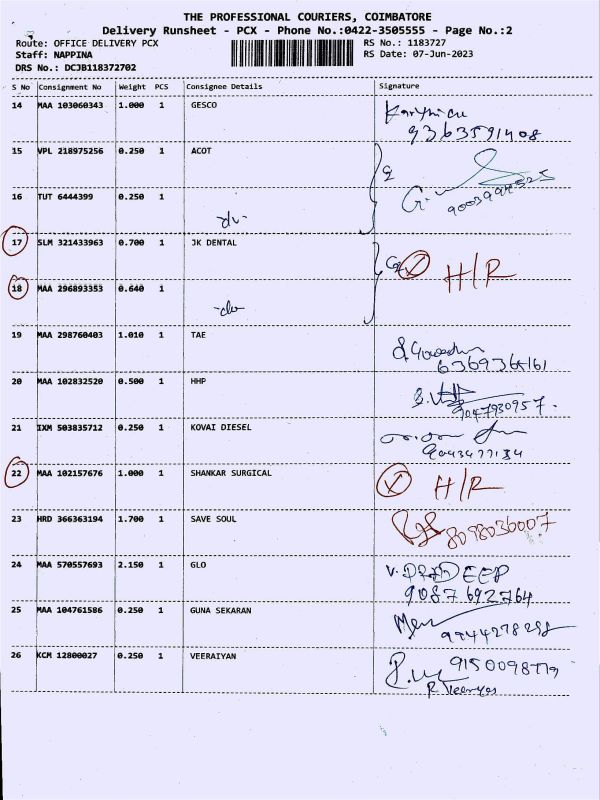 THE PROFESSIONAL COURIERS, COIMBATORE
Delivery Runsheet - PCX - Phone No.:0422-3505555 - Page No.:2
Route: OFFICE DELIVERY PCX
RS No.: 1183727
Staff: NAPPINA
RS Date: 07-Jun-2023
DRS No.: DCJB118372702
S No Consignment No Weight PCS Consignee Details Signature
14 MAA 103060343 1.000 1 GESCO
9363591408
15 VPL 218975256 0.250 1 ACOT
16 TUT 6444399 0.250 1
-do-
17 SLM 321433963 0.700 1 JK DENTAL
H/R
18 MAA 296893353 0.640 1
-do-
19 MAA 298760403 1.010 1 TAE
20 MAA 102832520 0.500 1 HHP
9047930957.
21 IXM 503835712 0.250 1 KOVAI DIESEL
9043477134
22 MAA 102157676 1.000 1 SHANKAR SURGICAL H/R
23 HRD 366363194 1.700 1 SAVE SOUL
8098036007
24 MAA 570557693 2.150 1 GLO V. PRADEEP
9087692764
25 MAA 104761586 0.250 1 GUNA SEKARAN
26 KCM 12800027 0.250 1 VEERAIYAN